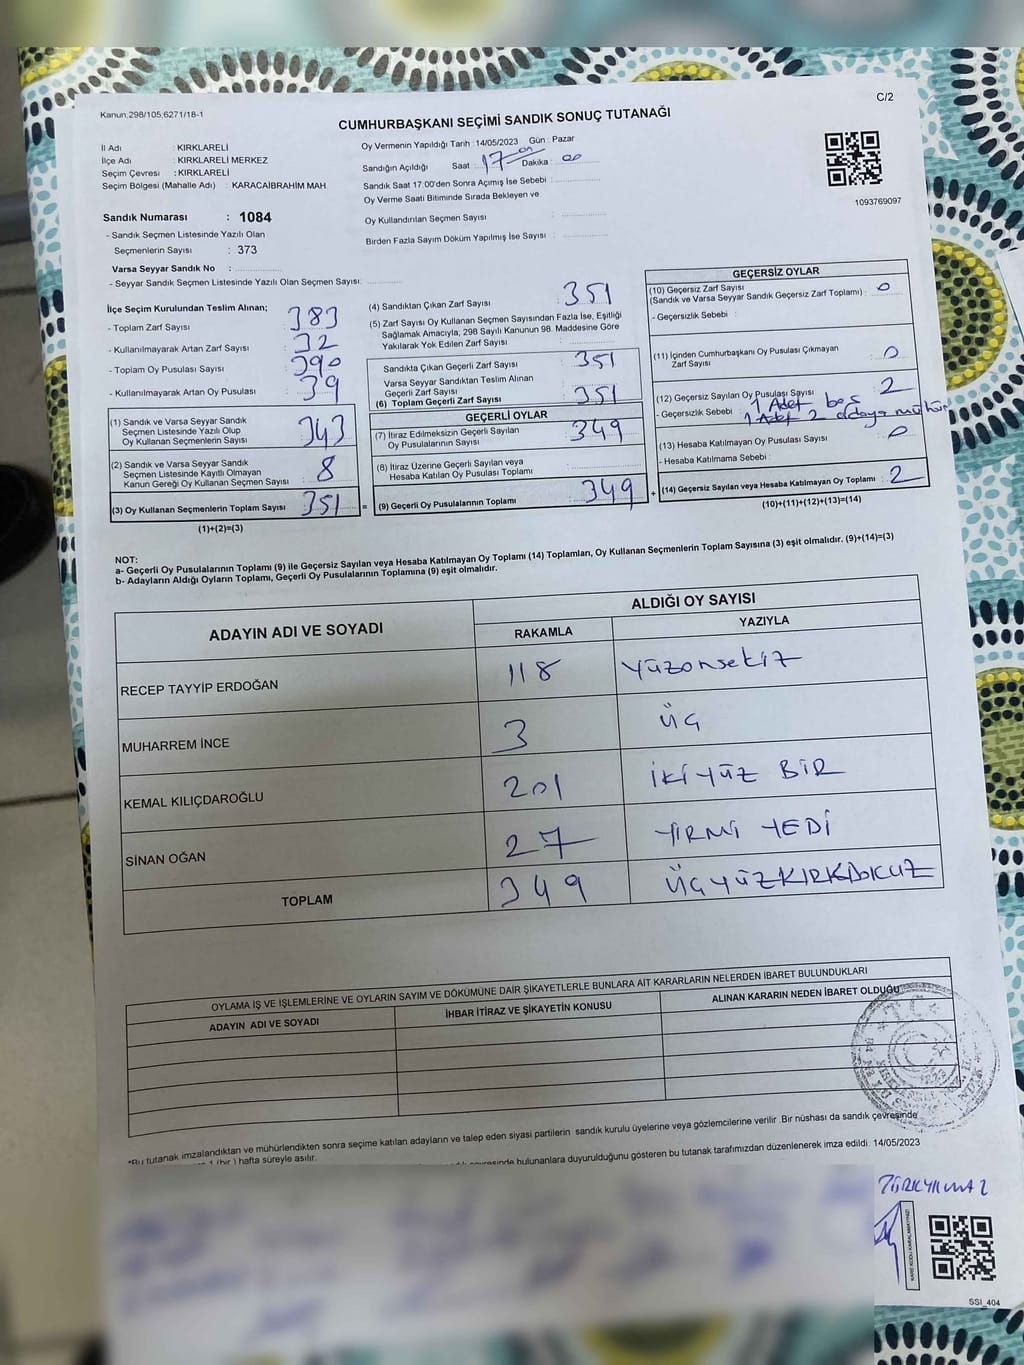 Kanun,298/105,6271/18-1
C/2
CUMHURBAŞKANI SEÇİMİ SANDIK SONUÇ TUTANAĞI
İl Adı : KIRKLARELİ
İlçe Adı : KIRKLARELİ MERKEZ
Seçim Çevresi : KIRKLARELİ
Seçim Bölgesi (Mahalle Adı) : KARACAİBRAHİM MAH.
Sandık Numarası : 1084
- Sandık Seçmen Listesinde Yazılı Olan
Seçmenlerin Sayısı : 373
Varsa Seyyar Sandık No :
- Seyyar Sandık Seçmen Listesinde Yazılı Olan Seçmen Sayısı:
Oy Vermenin Yapıldığı Tarih : 14/05/2023 Gün : Pazar
Sandığın Açıldığı Saat : 17 00 Dakika : 00
Sandık Saat 17.00'den Sonra Açımış İse Sebebi :
Oy Verme Saati Bitiminde Sırada Bekleyen ve
Oy Kullandırılan Seçmen Sayısı :
Birden Fazla Sayım Döküm Yapılmış İse Sayısı :
1093769097
İlçe Seçim Kurulundan Teslim Alınan;
- Toplam Zarf Sayısı : 383
- Kullanılmayarak Artan Zarf Sayısı : 32
- Toplam Oy Pusulası Sayısı : 390
- Kullanılmayarak Artan Oy Pusulası : 39
(1) Sandık ve Varsa Seyyar Sandık
Seçmen Listesinde Yazılı Olup
Oy Kullanan Seçmenlerin Sayısı : 343
(2) Sandık ve Varsa Seyyar Sandık
Seçmen Listesinde Kayıtlı Olmayan
Kanun Gereği Oy Kullanan Seçmen Sayısı : 8
(3) Oy Kullanan Seçmenlerin Toplam Sayısı : 351
(1)+(2)=(3)
(4) Sandıktan Çıkan Zarf Sayısı : 351
(5) Zarf Sayısı Oy Kullanan Seçmen Sayısından Fazla İse, Eşitliği
Sağlamak Amacıyla, 298 Sayılı Kanunun 98. Maddesine Göre
Yakılarak Yok Edilen Zarf Sayısı :
Sandıkta Çıkan Geçerli Zarf Sayısı : 351
Varsa Seyyar Sandıktan Teslim Alınan
Geçerli Zarf Sayısı :
(6) Toplam Geçerli Zarf Sayısı : 351
GEÇERLİ OYLAR
(7) İtiraz Edilmeksizin Geçerli Sayılan
Oy Pusulalarının Sayısı : 349
(8) İtiraz Üzerine Geçerli Sayılan veya
Hesaba Katılan Oy Pusulası Toplamı :
= (9) Geçerli Oy Pusulalarının Toplamı : 349 +
GEÇERSİZ OYLAR
(10) Geçersiz Zarf Sayısı
(Sandık ve Varsa Seyyar Sandık Geçersiz Zarf Toplamı) : 0
- Geçersizlik Sebebi :
(11) İçinden Cumhurbaşkanı Oy Pusulası Çıkmayan
Zarf Sayısı : 0
(12) Geçersiz Sayılan Oy Pusulası Sayısı : 2
- Geçersizlik Sebebi : 1 Adet boş
1 Adet 2 adaya mühür
(13) Hesaba Katılmayan Oy Pusulası Sayısı : 0
- Hesaba Katılmama Sebebi :
(14) Geçersiz Sayılan veya Hesaba Katılmayan Oy Toplamı : 2
(10)+(11)+(12)+(13)=(14)
NOT:
a- Geçerli Oy Pusulalarının Toplamı (9) ile Geçersiz Sayılan veya Hesaba Katılmayan Oy Toplamı (14) Toplamları, Oy Kullanan Seçmenlerin Toplam Sayısına (3) eşit olmalıdır. (9)+(14)=(3)
b- Adayların Aldığı Oyların Toplamı, Geçerli Oy Pusulalarının Toplamına (9) eşit olmalıdır.
ADAYIN ADI VE SOYADI
ALDIĞI OY SAYISI
RAKAMLA YAZIYLA
RECEP TAYYİP ERDOĞAN 118 yüzonsekiz
MUHARREM İNCE 3 üç
KEMAL KILIÇDAROĞLU 201 İKİ YÜZ BİR
SİNAN OĞAN 27 YİRMİ YEDİ
TOPLAM 349 ÜÇYÜZKIRKDOKUZ
OYLAMA İŞ VE İŞLEMLERİNE VE OYLARIN SAYIM VE DÖKÜMÜNE DAİR ŞİKAYETLERLE BUNLARA AİT KARARLARIN NELERDEN İBARET BULUNDUKLARI
ADAYIN ADI VE SOYADI İHBAR İTİRAZ VE ŞİKAYETİN KONUSU ALINAN KARARIN NEDEN İBARET OLDUĞU
*Bu tutanak imzalandıktan ve mühürlendikten sonra seçime katılan adayların ve talep eden siyasi partilerin sandık kurulu üyelerine veya gözlemcilerine verilir. Bir nüshası da sandık çevresinde
1 (bir) hafta süreyle asılır.
bulunanlara duyurulduğunu gösteren bu tutanak tarafımızdan düzenlenerek imza edildi. 14/05/2023
KARE KODU KARALAMAYINIZ!
SSI_404